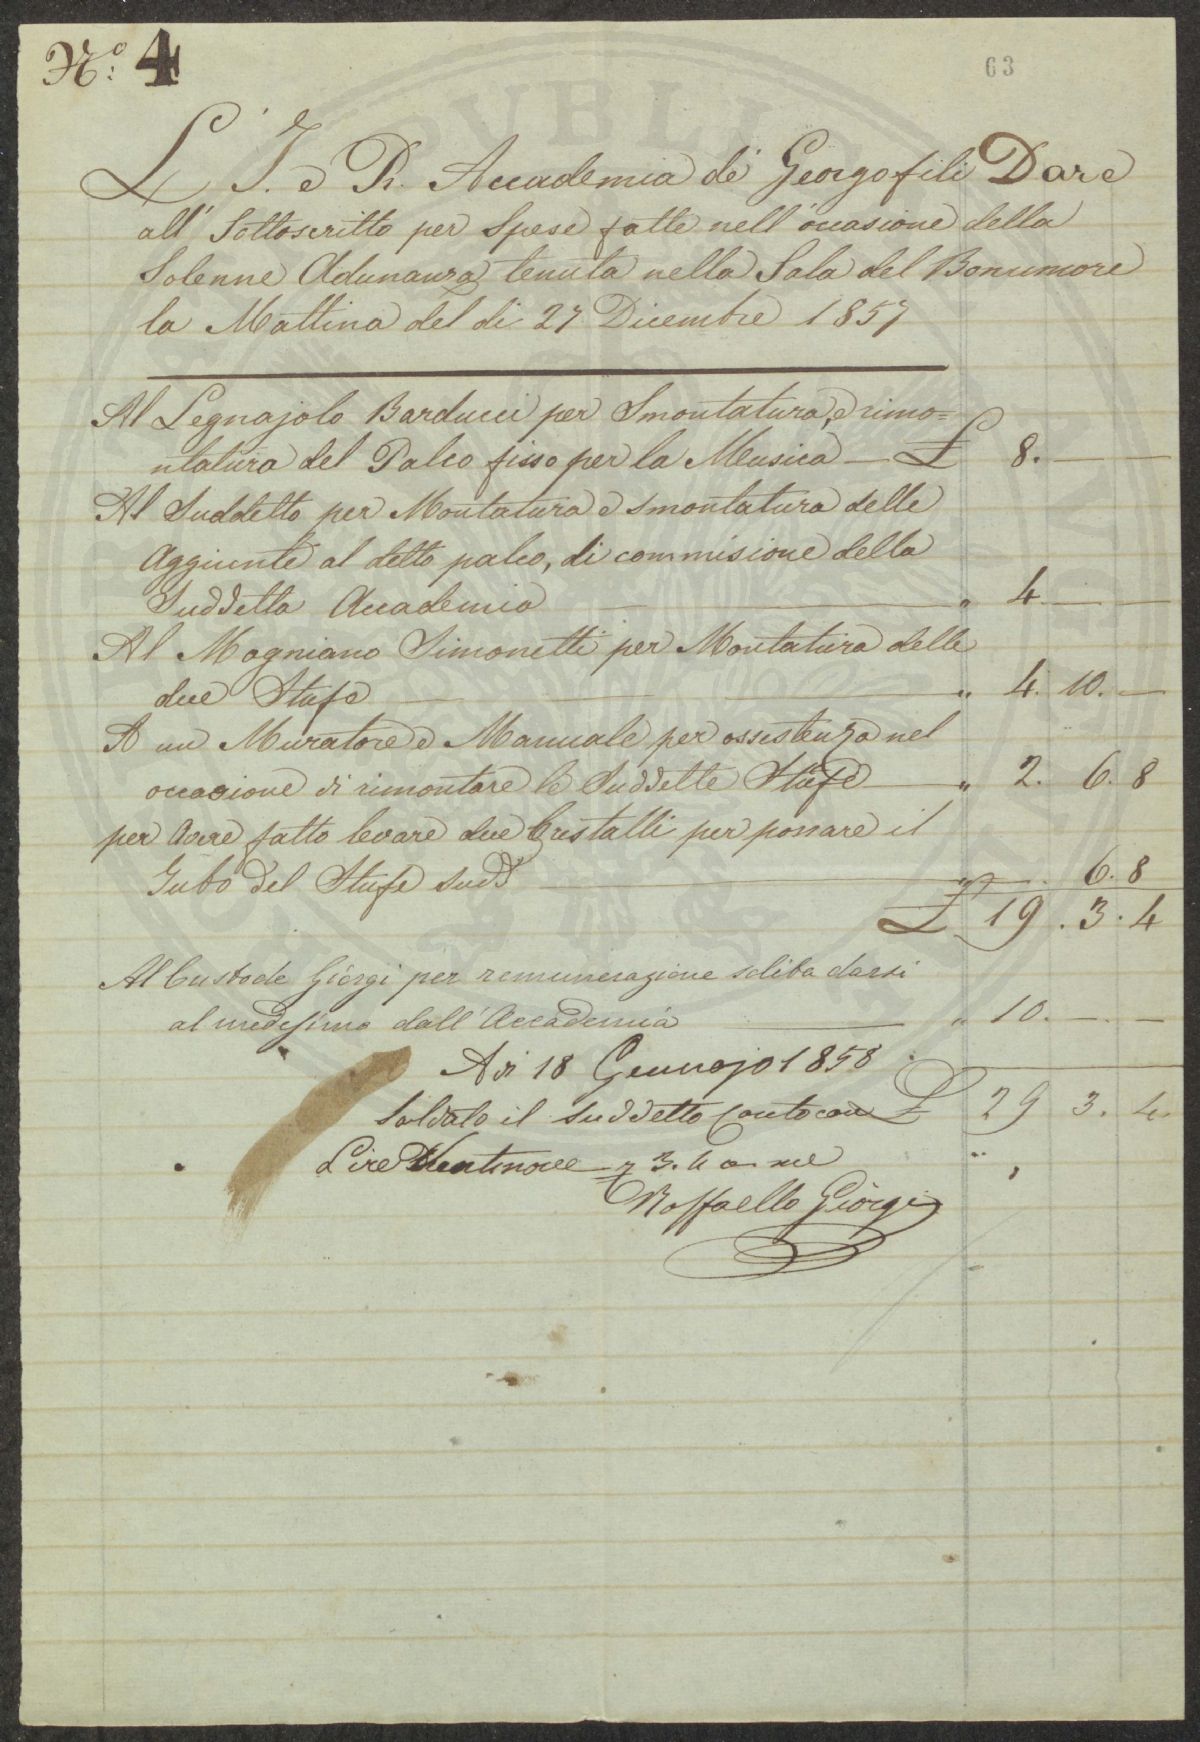 N.o 4
63
L' I. e R. Accademia de' Georgofili Dare
all' Sottoscritto per Spese fatte nell' occasione della
Solenne Adunanza tenuta nella Sala del Bonumore
la Mattina del di 27 Dicembre 1857
Al Legnajolo Barducci per Smontatura, e rimo=
ntatura del Palco fisso per la Musica — £ 8. — —
Al Suddetto per Montatura e smontatura delle
Aggiunte al detto palco, di commisione della
Suddetta Accademia — " 4. — —
Al Magniano Simonetti per Montatura delle
due Stufe — " 4. 10. —
A un Muratore e Manuale per assistenza nel
occasione di rimontare le Suddette Stufe — " 2. 6. 8
per Avere fatto levare due Cristalli per passare il
Tubo del Stufe sudd — " — . 6. 8
£ 19. 3. 4
Al Custode Giorgi per remunerazione solita darsi
al medesimo dall' Accademia — " 10. — . —
A di 18 Gennajo 1858
Saldato il suddetto Conto con £ 29 3. 4
Lire Ventinove 3. 4
Raffaello Giorgi